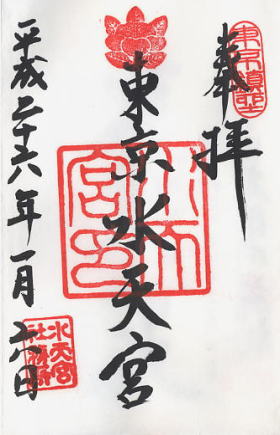 奉拝
東京水天宮
平成二十六年一月六日
水天宮印
水天宮
社務所